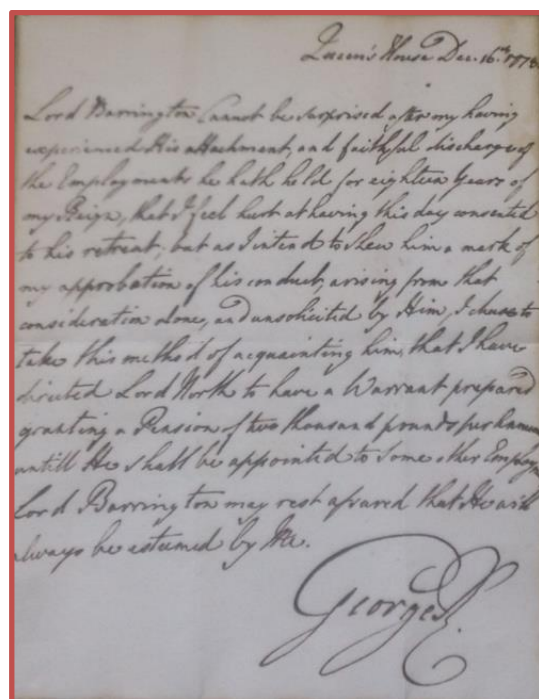 Queen's House Dec. 16th 1778
Lord Barrington Cannot be surprised after my having
experienced His attachment, and faithful discharge of
the Employments he hath held for eighteen Years of
my Reign, that I feel hurt at having this day consented
to his retreat; but as I intend to shew him a mark of
my approbation of his conduct, arising from that
consideration alone, and unsolicited by Him, I chuse to
take this method of acquainting him, that I have
directed Lord North to have a Warrant prepared
granting a Pension of two thousand pounds per Annum
untill He shall be appointed to some other Employm
Lord Barrington may rest assured that He will
always be esteemed by Me.
George R.